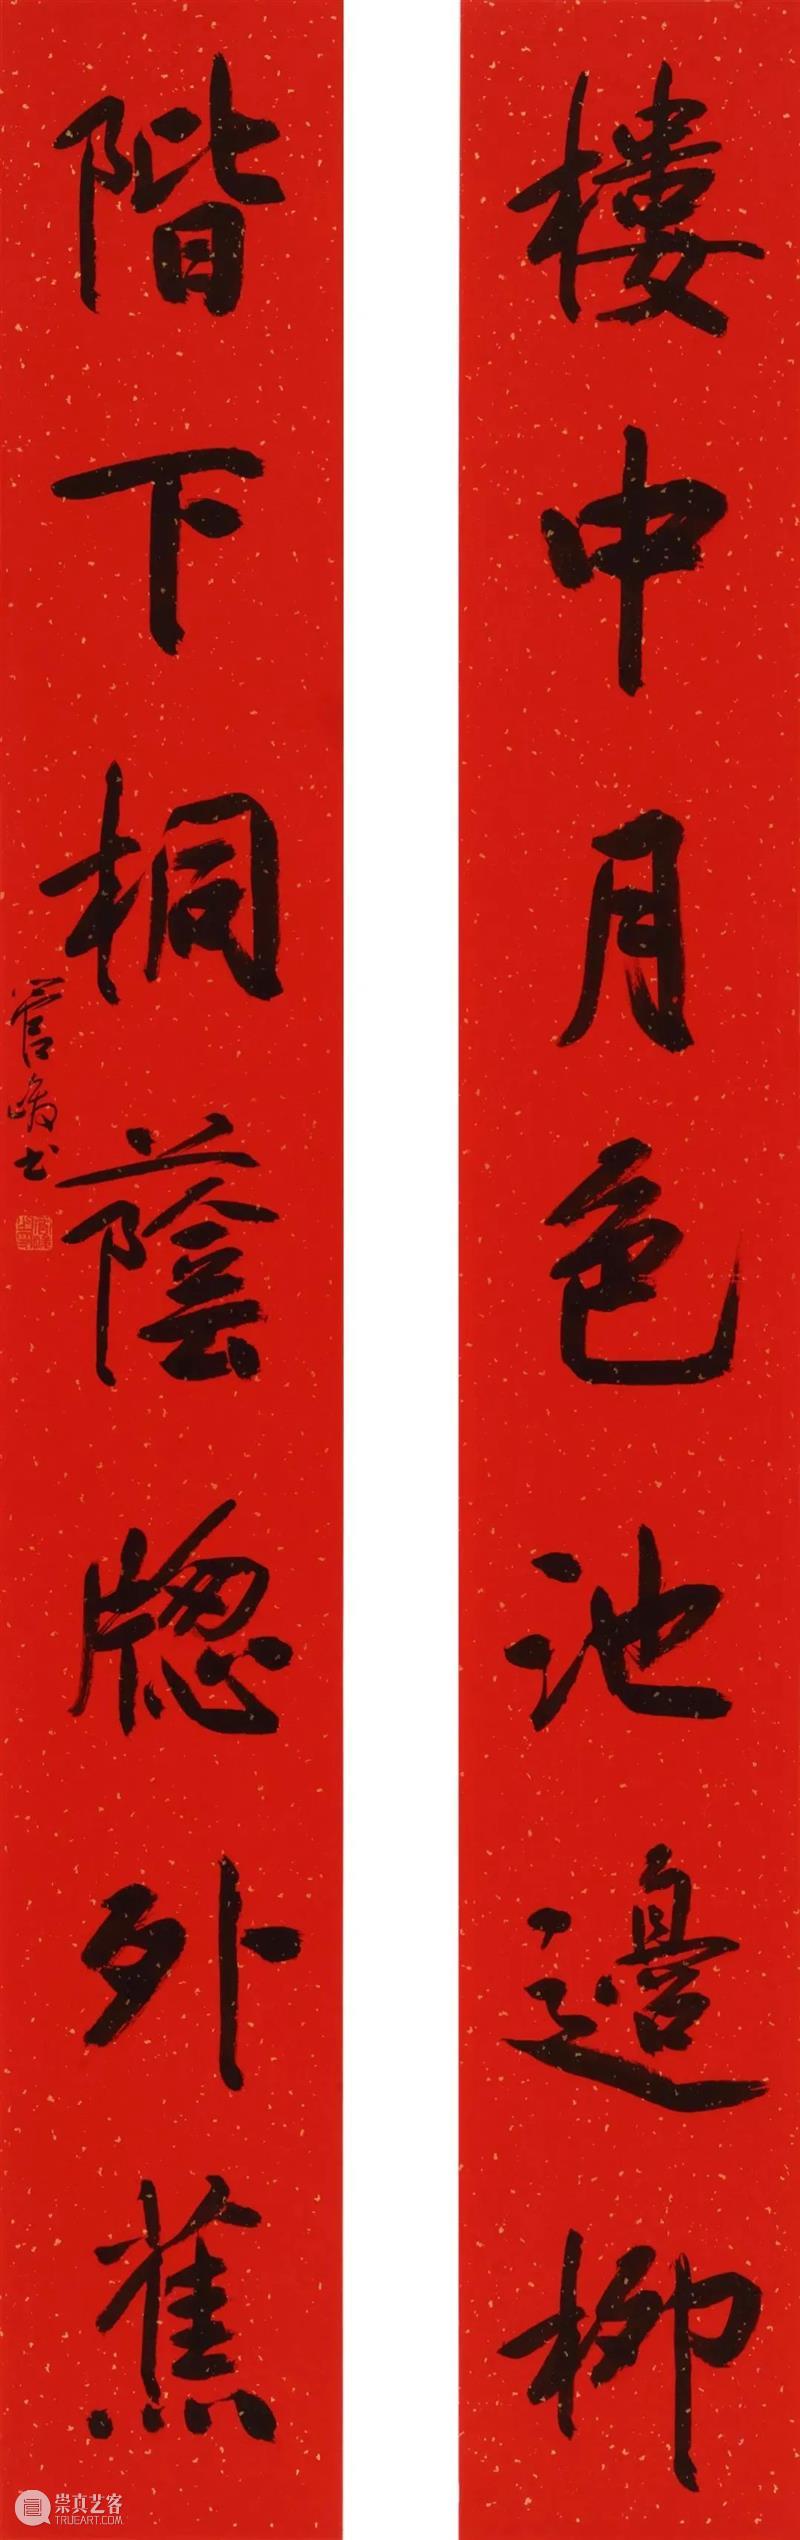 樓中月色池邊柳
階下桐蔭牕外蕉
管峻书
崇真艺客
TRUEART.COM